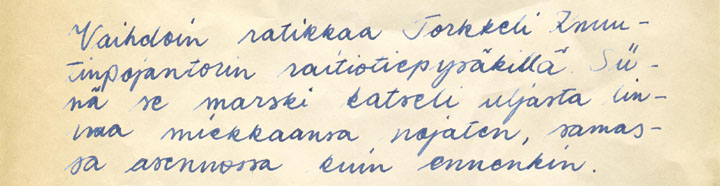 Vaihdoin ratikkaa Torkkeli Knuu-
tinpojantorin raitiotiepysäkillä. Sii-
nä se marski katseli uljasta lin-
naa miekkaansa nojaten, samas-
sa asennossa kuin ennenkin.